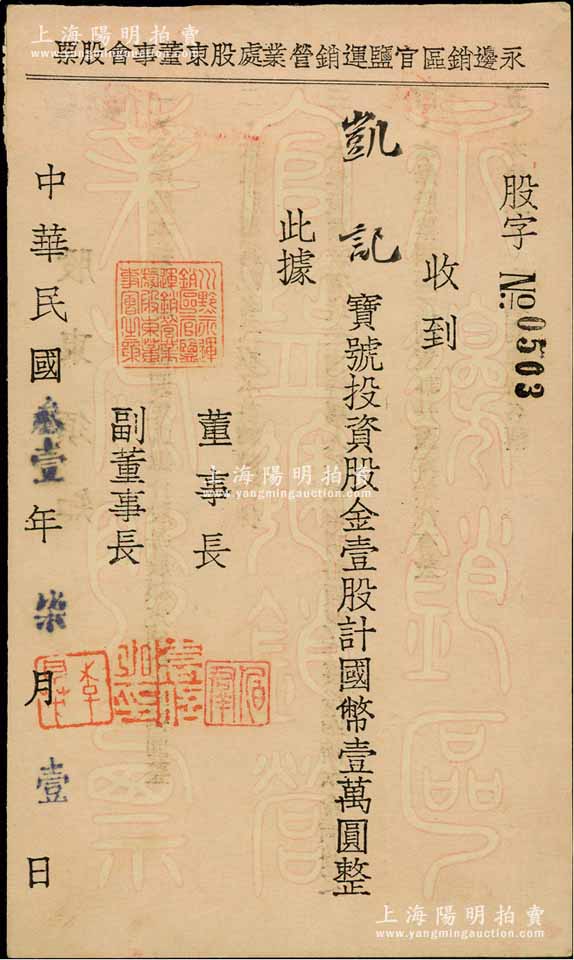 永邊銷區官鹽運銷營業處股東董事會股票
股字 No. 0503
收到
凱記 寶號投資股金壹股計國幣壹萬圓整
此據
董事長
副董事長
中華民國叁壹年柒月壹日
上海陽明拍賣
www.yangmingauction.com
上海陽明拍賣
www.yangmingauction.com